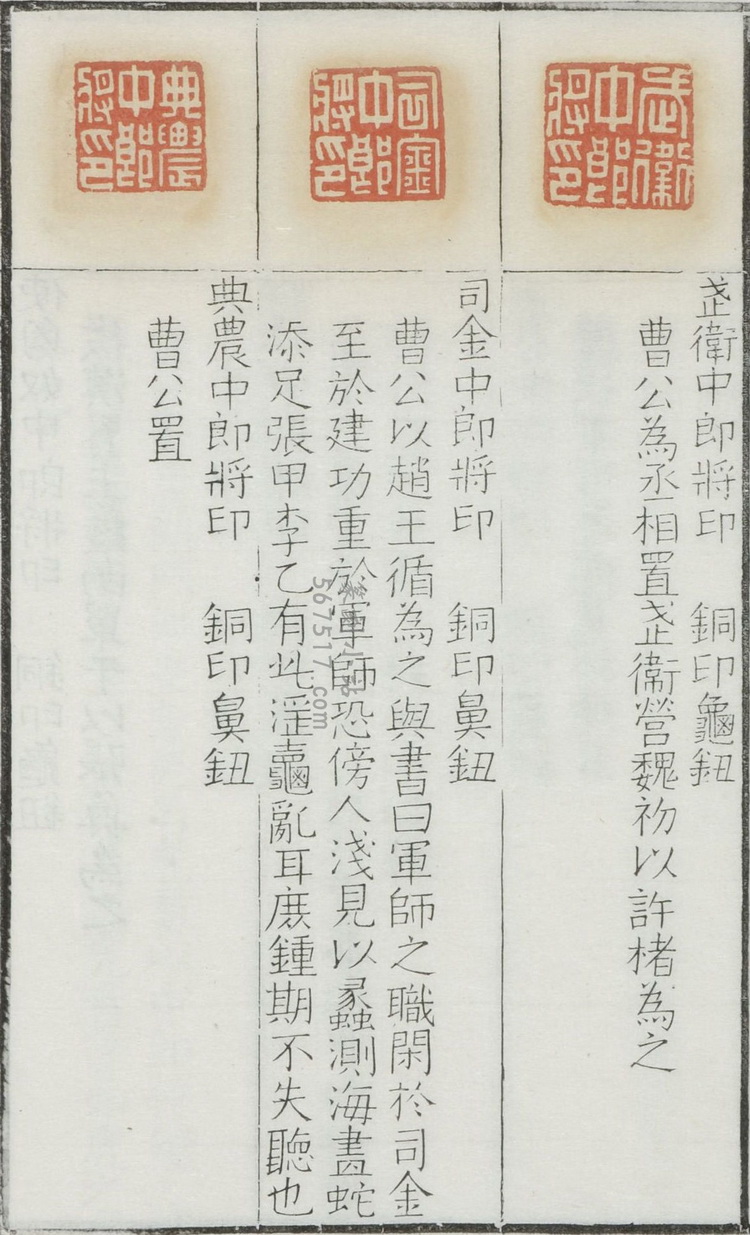 武衛中郎將印
司金中郎將印
典農中郎將印
武衛中郎將印　銅印龜鈕
曹公為丞相置武衛營魏初以許楮為之
司金中郎將印　銅印鼻鈕
曹公以趙王循為之與書曰軍師之職閑於司金
至於建功重於軍師恐傍人淺見以蠡測海畫蛇
添足張甲李乙有此淫鼃亂耳庻鍾期不失聽也
典農中郎將印　銅印鼻鈕
曹公置
567517.com